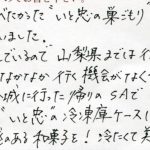 べたかった"いと忠の巣ごもり
いました。
しているので 山梨県までは行
なかなか行く機会がなく
城に行った帰りのSAで
"いと忠"の冷凍庫ケースに
ある和菓子を!冷たくて美